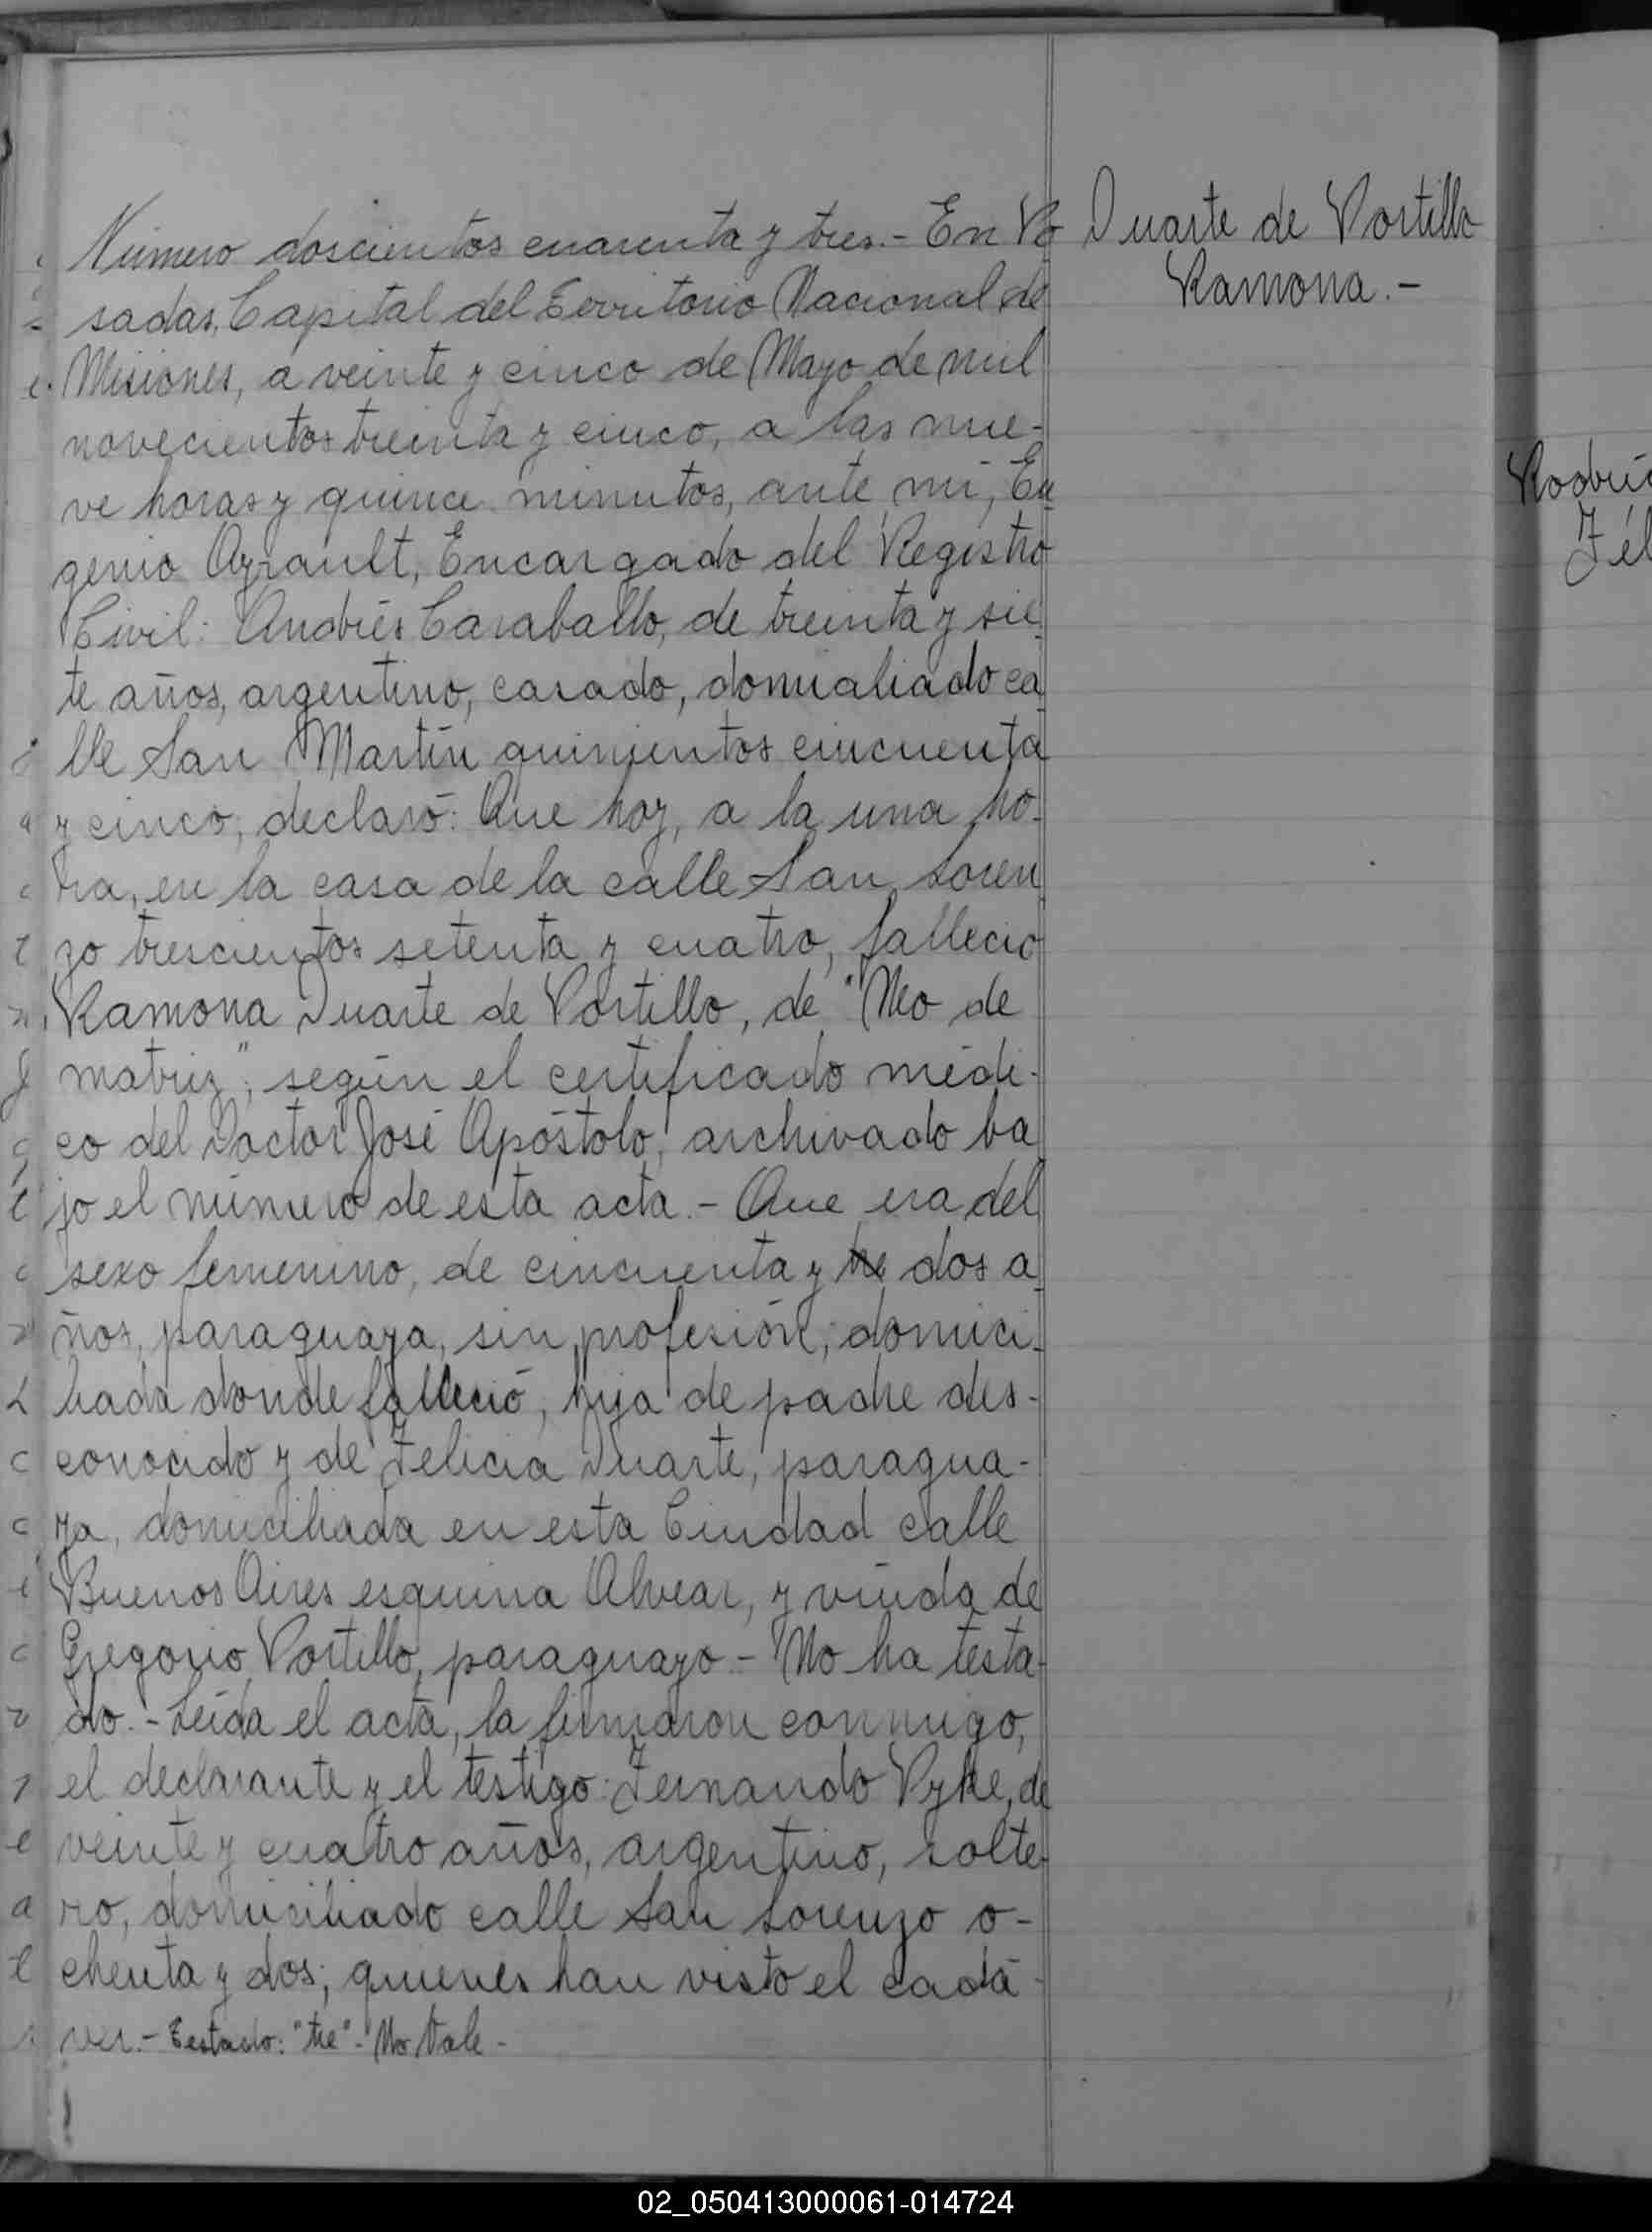 Número doscientos cuarenta y tres.- En Po
sadas, Capital del Territorio Nacional de
Misiones, a veinte y cinco de Mayo de mil
novecientos treinta y cinco, a las nue-
ve horas y quince minutos, ante mí, Eu
genio Ayrault, Encargado del Registro
Civil: Andrés Caraballo, de treinta y sie
te años, argentino, casado, domiciliado ca
lle San Martín quinientos cincuenta
y cinco, declaró: Que hoy, a la una ho-
ra, en la casa de la calle San Loren
zo trescientos setenta y cuatro, falleció
Ramona Duarte de Portillo, de "Neo de
matriz", según el certificado médi-
co del Doctor José Apóstolo, archivado ba
jo el número de esta acta.- Que era del
sexo femenino, de cincuenta y tre dos a
ños, paraguaya, sin profesión, domici-
liada donde falleció, hija de padre des-
conocido y de Felicia Duarte, paragua-
ya, domiciliada en esta Ciudad calle
Buenos Aires esquina Alvear, y viuda de
Gregorio Portillo, paraguayo.- No ha testa-
do.- Leída el acta, la firmaron conmigo,
el declarante y el testigo: Fernando Pyke, de
veinte y cuatro años, argentino, solte-
ro, domiciliado calle San Lorenzo o-
chenta y dos; quienes han visto el cadá-
ver.- Testado: "tre"- No Vale-
Duarte de Portillo
Ramona.-
02_050413000061-014724